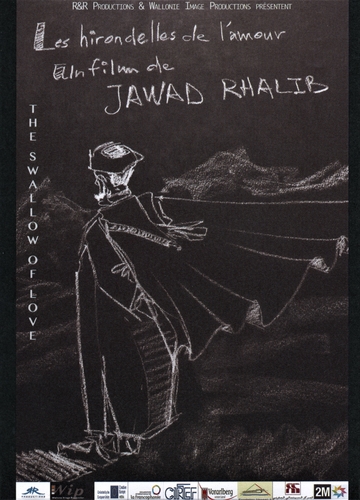 R&R Productions & Wallonie Image Productions présentent
Les hirondelles de l'amour
un film de
JAWAD RHALIB
THE SWALLOW OF LOVE
Wip
CIRTEF
Vorarlberg
2M